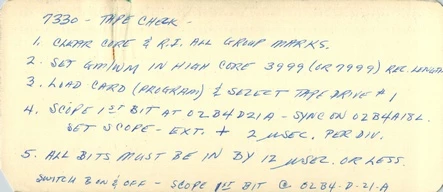 7330 - TAPE CHECK -
1. CLEAR CORE & R.I. ALL GROUP MARKS.
2. SET GM/WM IN HIGH CORE 3999 (OR 7999) REC. LENGTH
3. LOAD CARD (PROGRAM) & SELECT TAPE DRIVE # 1
4. SCOPE 1ST BIT AT 02B4D21A - SYNC ON 02B4A18L.
SET SCOPE - EXT. + 2 µSEC. PER DIV.
5. ALL BITS MUST BE IN BY 12 µSEC. OR LESS.
SWITCH B ON & OFF - SCOPE 1ST BIT @ 02B4-D-21-A